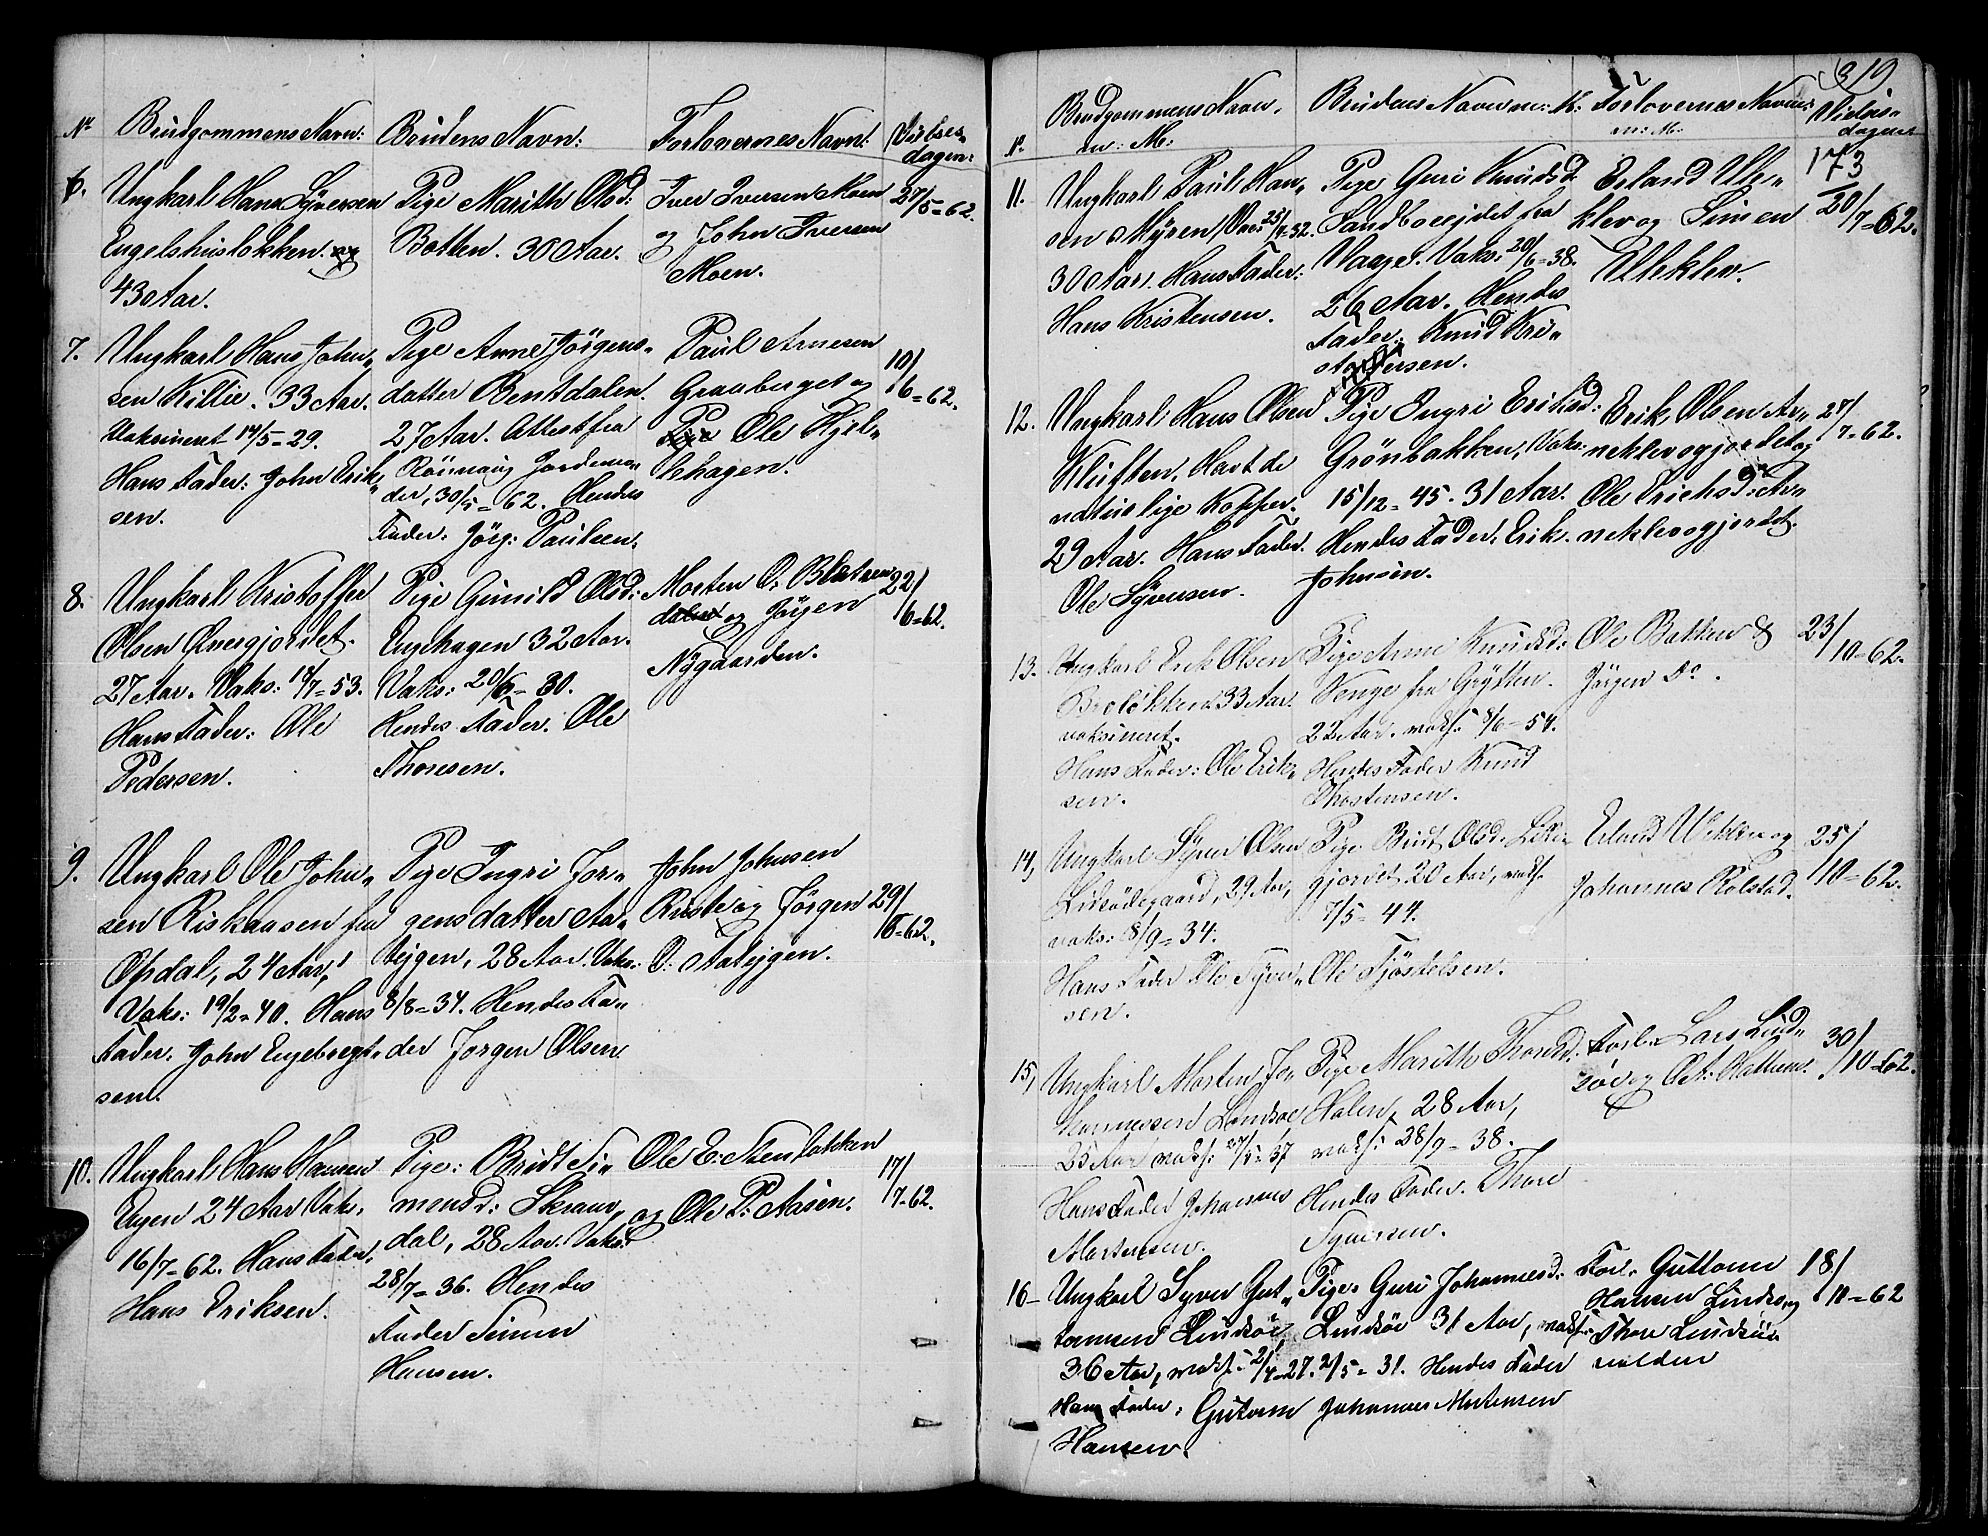 Nr
Brudgommens Navn:
Brudens Navn:
Forlovernes Navn:
Vielses-
dagen:
6.
Ungkarl Hans Syversen
Engelshusløkken.
43 Aar.
Pige Marith Olsd:
Botten. 30 Aar.
Iver Iversen Moen
og John Iversen
Moen.
27/5=62.
7.
Ungkarl Hans John„
sen Killie. 33 Aar.
Vaksineret 14/5=29.
Hans Fader: John Erik„
sen.
Pige Anne Jörgens„
datter Bentdalen.
27 Aar. Attest fra
Jordemo„
der, 30/5=62. Hendes
Fader: Jörg: Paulsen.
Paul Arnesen
Graaberget og
Ole Hjel„
lehagen.
10/
6=62.
8.
Ungkarl Kristoffer
Olsen Øvergjordet.
27 Aar. Vaks: 14/7=53.
Hans Fader: Ole
Pedersen.
Pige Gunild Olsd:
Enghagen 32 Aar.
Vaks: 20/6=30.
Hendes Fader: Ole
Thoresen.
Morten O:
og Jörgen
Nygaarden.
22/
6=62.
9.
Ungkarl Ole John„
sen Riskaasen fra
Opdal, 24 Aar,
Vaks: 19/2=40. Hans
Fader. John Engebregt„
sen.
Pige Ingri Jör„
gensdatter Aa„
teigen, 28 Aar. Vaks:
8/8=34. Hendes Fa„
der Jörgen Olsen
John Johnsen
Riise og Jörgen
O. Aateigen.
29/
6=62.
10.
Ungkarl Hans Hansen
Engen 24 Aar Vaks.
16/7=62. Hans Fader.
Hans Eriksen.
Pige: Bridt Si„
mensd: Skrauv„
dal, 28 Aar. Vaks:
28/7=36. Hendes
Fader Simen
Hansen.
Ole E: Stenløkken
og Ole P: Aasen.
17/
7=62.
319
173
Nr.
Brudgommens Navn.
m: M:
Brudens Navn m: M:
Forlovernes Navne
m: M:
Vielses-
dagen
11.
Ungkarl Paul Han„
sen Myren, Vacs 25/7=32.
30 Aar. Hans Fader:
Hans Kristensen.
Pige Guri Knudsd.
Sandboeejdet fra
Vaage. Vaks: 20/6=38.
26 Aar. Hendes
Fader: Knud Kri„
stoffersen.
Erland Ulle„
klev og Simen
Ulleklev.
20/7=62.
12.
Ungkarl Hans Olsen
Kluften. Havt de
naturlige Kopper.
29 Aar. Hans Fader.
Ole Syversen.
Pige Ingri Eriksd:
Grönbakken, Vaks:
15/12=45. 31 Aar.
Hendes Fader: Erik
Johnsen.
Erik Olsen Ar„
neklevogjordet og
Ole Erichsd: Ar„
neklevogjordet.
27/
7=62.
13.
Ungkarl Erik Olsen
Broløkken 33 Aar.
vaksineret.
Hans Fader: Ole Erik„
sen.
Pige Anne Knudsd:
Venge fra Grytten.
22 Aar. vaks: 8/6=54.
Hendes Fader Knud
Thostensen.
Ole Botten &
Jörgen Do.
23/
10=62.
14,
Ungkarl Syver Olsen
Lidsödegaard, 29 Aar,
vaks: 8/9=34.
Hans Fader Ole Syver„
sen.
Pige Bridt Olsd.
gjordet 20 Aar, vaks.
7/5=44.
Ole Tjöstelsen.
Erland Uleklev og
Johannes Kolstad.
25/
10=62.
15,
Ungkarl Morten Jo„
hannessen Lindsøe
25 Aar vaks: 27/5=37
Hans Fader Johannes
Mortensen.
Pige Marith Thorsd:
Holen, 28 Aar,
vaks: 28/9=38.
Hendes Fader. Thore
Syversen.
Forl. Lars Lind„
söe og Hattrem.
30/
10=62.
16-
Ungkarl Syver Gut„
tormsen Lindsöe,
36 Aar, vaks: 2/4=27.
Hans Fader: Gutorm
Hansen.
Pige: Guri Johannesd:
Lindsöe 31 Aar, vaks:
2/5=31. Hendes Fader
Johannes Mortensen
Forl. Guttorm
Hansen Lindsö og
Thore Lindsöe
18/
10=62